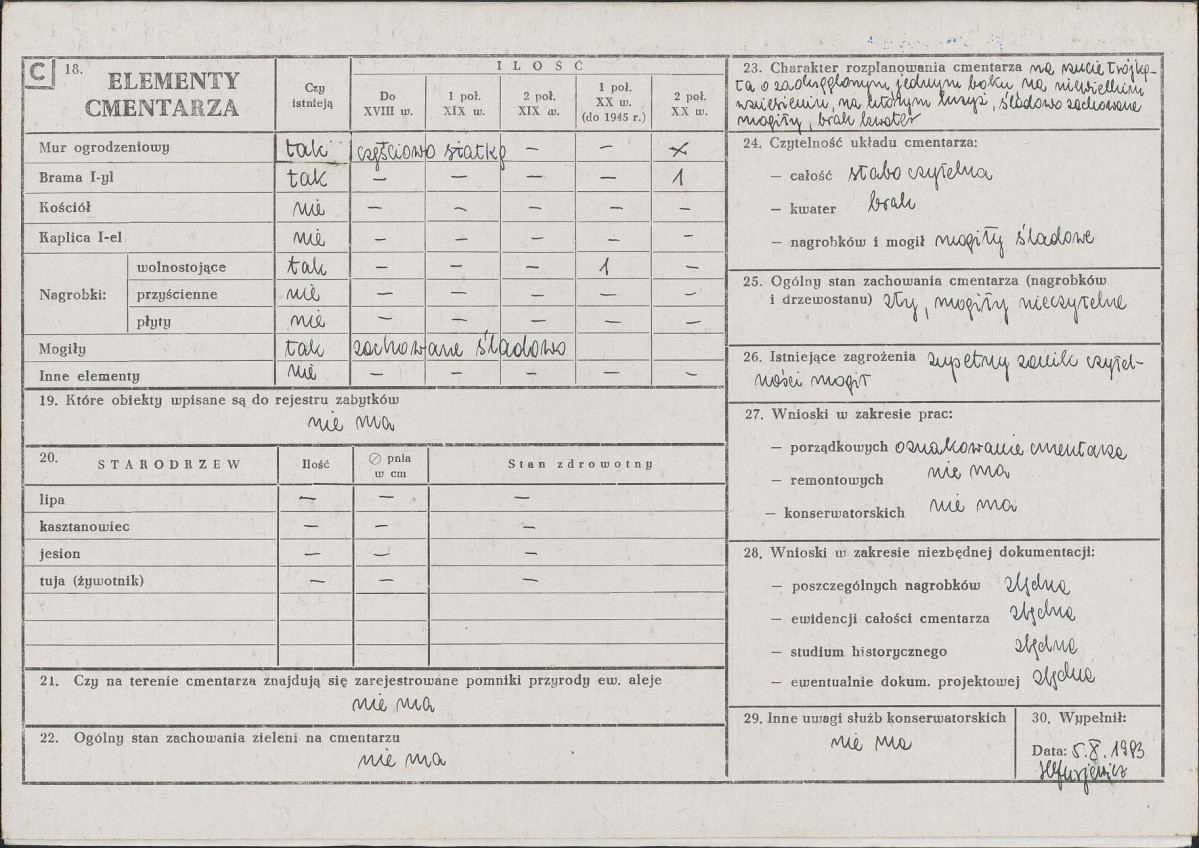 C 18. ELEMENTY CMENTARZA
Czy istnieją
ILOŚĆ
Do XVIII w.
1 poł. XIX w.
2 poł. XIX w.
1 poł. XX w. (do 1945 r.)
2 poł. XX w.
Mur ogrodzeniowy tak częściowo siatką — — x
Brama I-yl tak — — — — 1
Kościół nie — — — — —
Kaplica I-el nie — — — — —
Nagrobki:
wolnostojące tak — — — 1 —
przyścienne nie — — — — —
płyty nie — — — — —
Mogiły tak zachowane śladowo
Inne elementy nie — — — — —
19. Które obiekty wpisane są do rejestru zabytków
nie ma
20. STARODRZEW Ilość ∅ pnia w cm Stan zdrowotny
lipa — — —
kasztanowiec — — —
jesion — — —
tuja (żywotnik) — — —
21. Czy na terenie cmentarza znajdują się zarejestrowane pomniki przyrody ew. aleje
nie ma
22. Ogólny stan zachowania zieleni na cmentarzu
nie ma
23. Charakter rozplanowania cmentarza na rzucie trójką-
ta o zaokrąglonym jednym boku na niewielkim
wzniesieniu, na którym krzyż, śladowo zachowane
mogiły, brak kwater
24. Czytelność układu cmentarza:
— całość słabo czytelna
— kwater brak
— nagrobków i mogił mogiły śladowe
25. Ogólny stan zachowania cmentarza (nagrobków
i drzewostanu) zły, mogiły nieczytelne
26. Istniejące zagrożenia zupełny zanik czytel-
ności mogił
27. Wnioski w zakresie prac:
— porządkowych oznakowanie cmentarza
— remontowych nie ma
— konserwatorskich nie ma
28. Wnioski w zakresie niezbędnej dokumentacji:
— poszczególnych nagrobków zbędna
— ewidencji całości cmentarza zbędna
— studium historycznego zbędne
— ewentualnie dokum. projektowej zbędna
29. Inne uwagi służb konserwatorskich
nie ma
30. Wypełnił:
Data: 5.X.1993